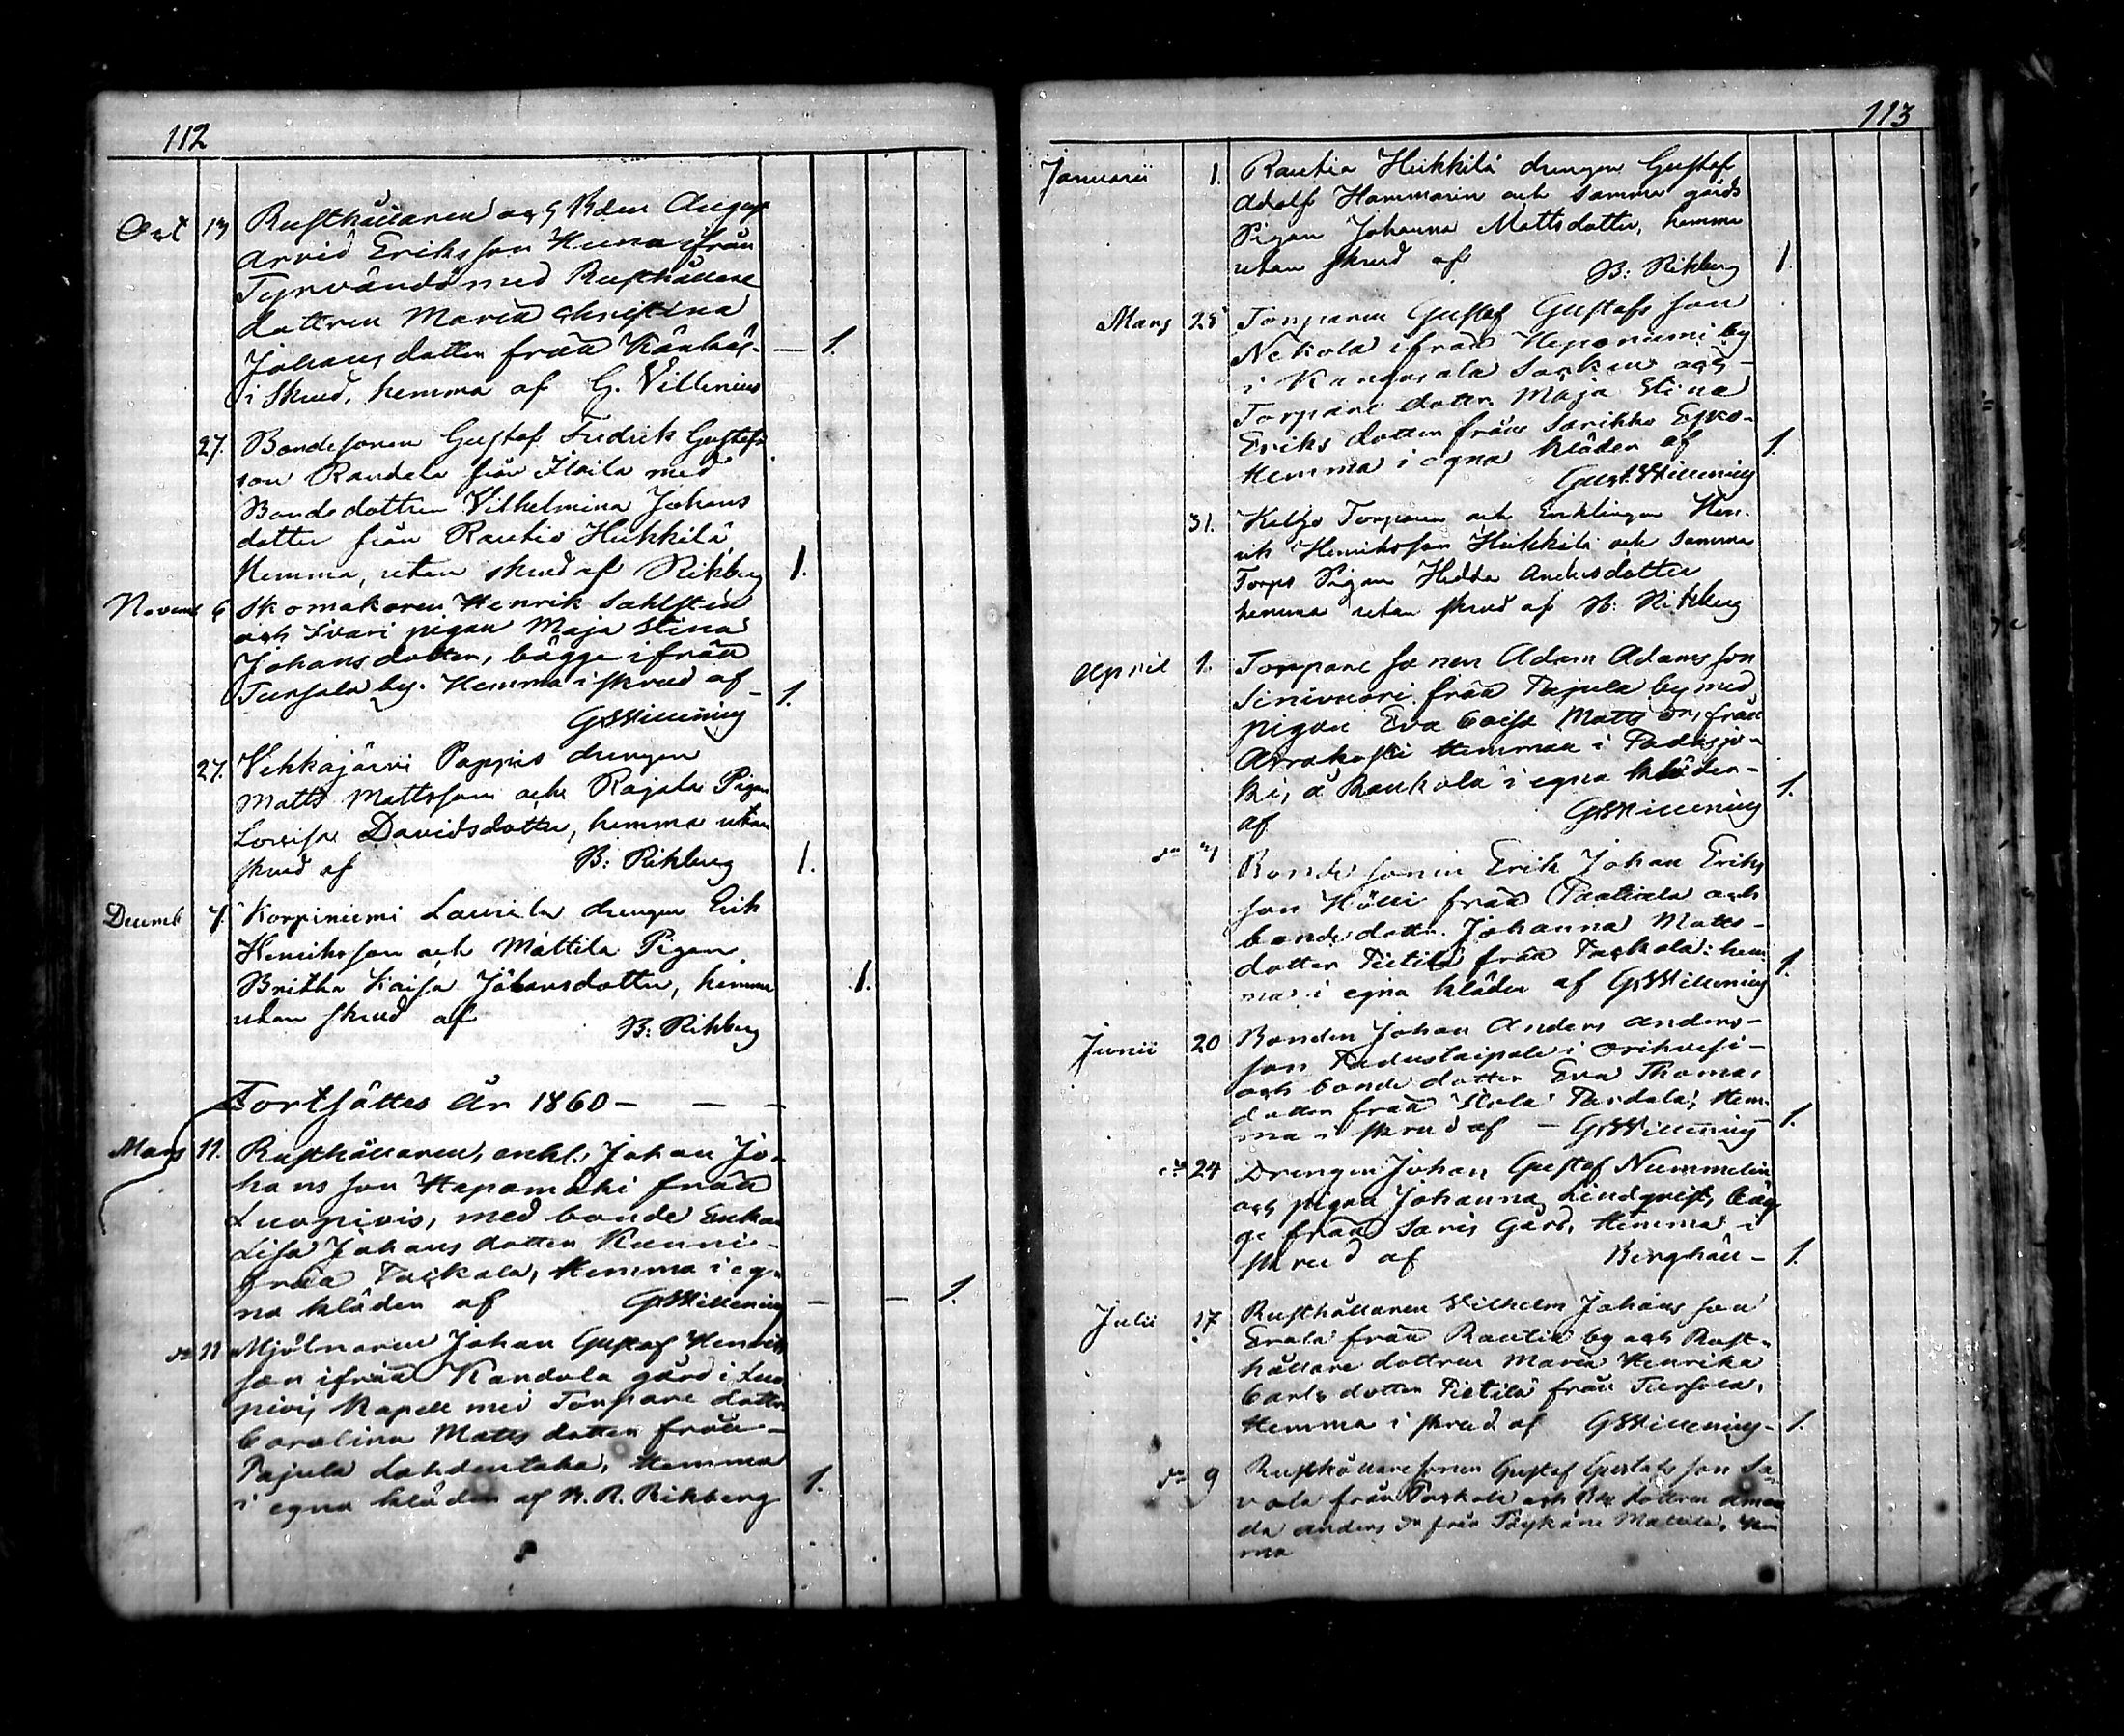 112
Oct 13 Rusthållaren och Kden August
Arvid Eriksson Huna ifrån
Tyrvändö med Rusthållare
dottren Maria Christina
Johans dotter från
i skrud, hemma af G. Villenius
27. Bondesonen Gustaf Fredrik Gustafs
son Randala från Ilaila med
Bondedottren Vilhelmina Johans
dotter från Rautio Heikkilä
Hemma, utan skrud af Rikberg 1.
Novemb 6 Skomakaren Henrik Sahlsten
och pigan Maja Stina
Johansdotter, bägge ifrån
Tursala by. Hemma i skrud af 1.
GWillenius
27. Vehkajärvi Pappis drengen
Matts Mattsson och Rajala Pigan
Lovisa Davidsdotter, hemma utan
skrud af B: Rikberg 1.
Decemb 7. Korpiniemi Laurila drengen Erik
Henriksson och Mattila Pigan
Britha Kaisa Johansdotter, hemma 1.
utan skrud af B: Rikberg
Fortsättes År 1860 — — —
Mars 11. Rusthållaren, enkl. Johan Jo-
hansson Hapamäki från
Luopiois, med bonde Enkan
Lisa Johans dotter
från Puckala, Hemma i eg-
na kläder af GWillenius — — 1.
do 11 Mjölnaren Johan Gustaf Henriks
son ifrån Kandola gård i Luo
piois Kapell med Torpare dottren
Carolina Matts dotter från
Pajula Lahdentaka, Hemma
i egna kläder af B. R. Rikberg 1.
113
Januarii 1. Rautio Heikkilä drengen Gustaf
Adolf Hammarin och samma gårds
Pigan Johanna Mattsdotter, hemma
utan skrud af B: Rikberg 1.
Mars 25 Torparen Gustaf Gustafsson
Nekola ifrån Heponiemi by
i Kangasala Socken och
Torpare dotter Maja Stina
Eriks dotter från Sarikko
Hemma i egna kläder af 1.
Gust. Willenius
31. Torparen och Enklingen Hen-
rik Henriksson Heikkilä och samma
Torps Pigan Hedda Andersdotter
hemma utan skrud af B: Rikberg
April 1. Torpare sonen Adam Adamsson
Sinivuori från Pajula by med
pigan Eva Caisa Matts dr, från
Arrakoski Hemman i Padasjo-
ki, å Kaukola i egna kläder 1.
af GWillenius
do Bonde sonen Erik Johan Eriks
son från och
bonde dottr. Johanna Matts-
dotter Pietilä från Puckala: hem 1.
ma i egna kläder af GWillenius
Junii 20 Bonden Johan Anders Anders-
son i Orihvesi
och bonde dotter Eva Thomas
dotter från Hem-
ma i skrud af — GWillenius 1.
do 24 Drengen Johan Gustaf Nummelin
och pigan Johanna Lindqvist, Bäg
ge från Saris Gård, Hemma i
skrud af Berghäll 1.
Julii 17 Rusthållaren Vilhelm Johansson
Erola från Rautio by och Rust-
hållare dottren Maria Henrika
Carls dotter Pietilä från Tursola,
Hemma i skrud af GWillenius 1.
do 9 Rusthållaresonen Gustaf Gustafsson Sa-
vola från Puckala och dottren Aman
da Anders dr från Mattila, Hem
ma